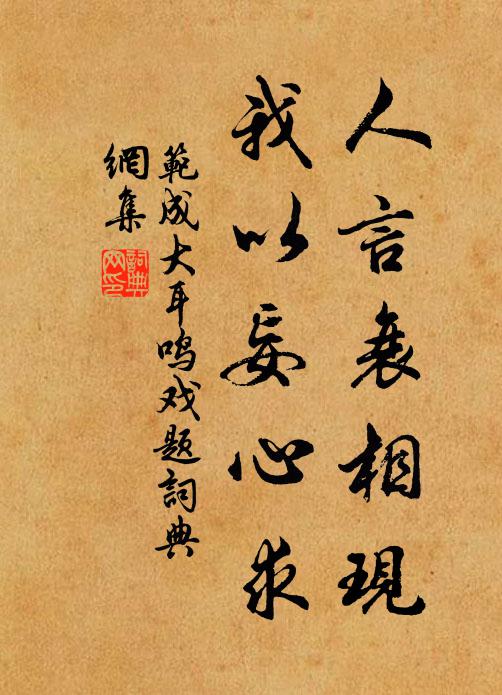 人言衰相現
我以妄心求
範成大耳鸣戏题詞典
網集
詞典
网印